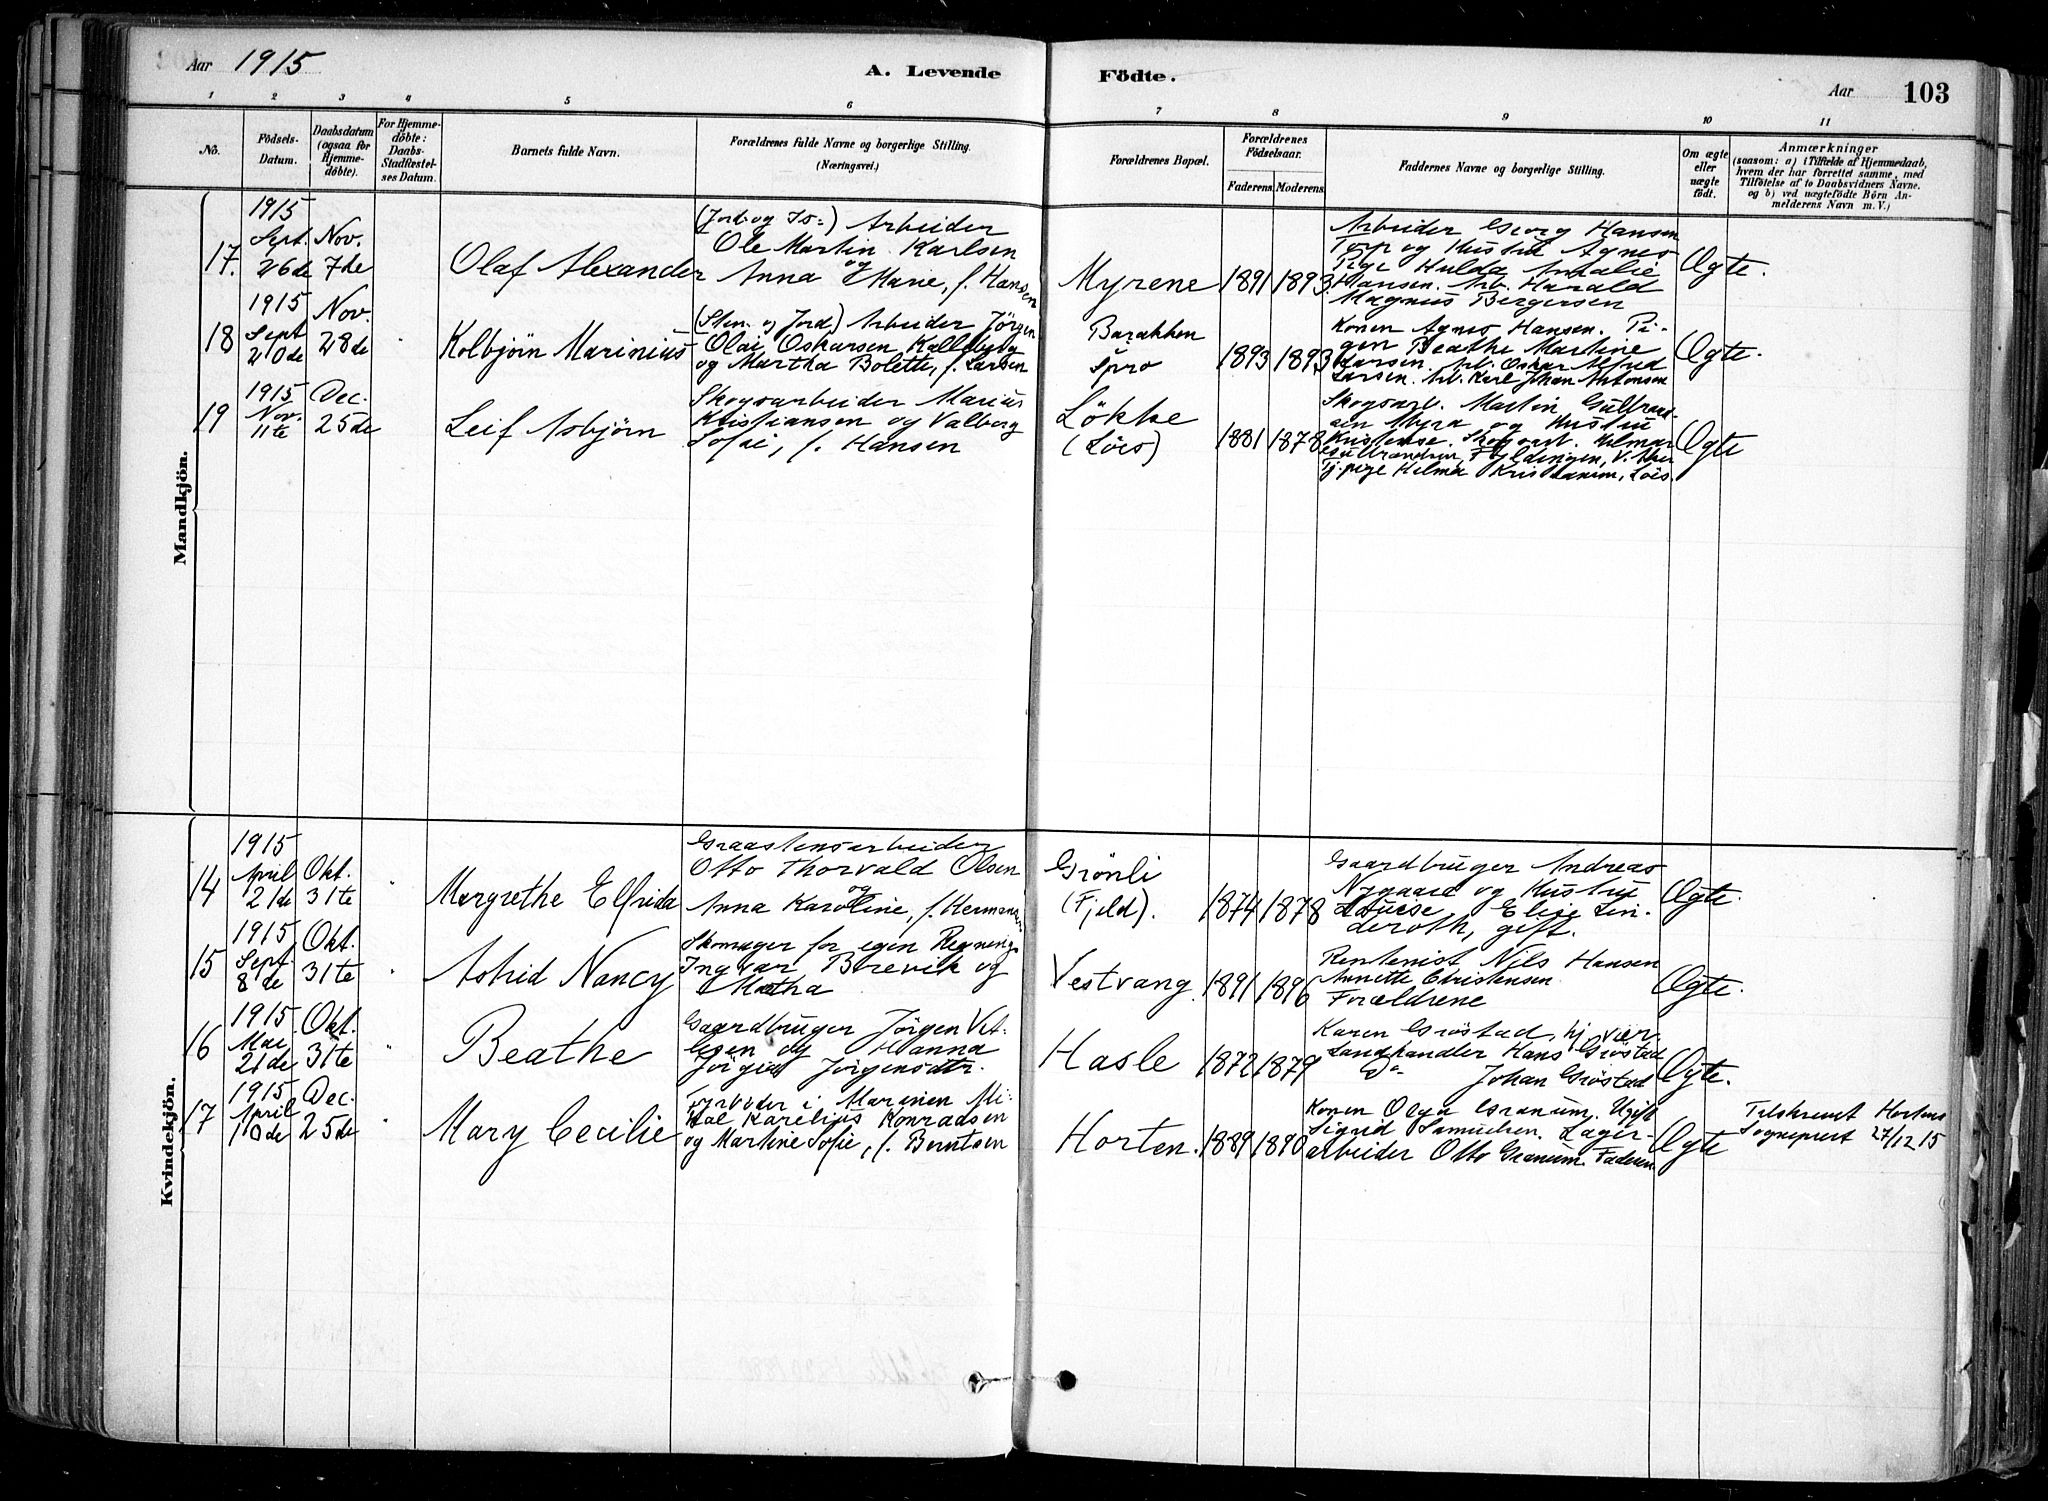 Aar 1915
A. Levende Födte.
Aar 103
1 2 3 4 5 6 7 8 9 10 11
No.
Födsels-Datum.
Daabsdatum (ogsaa for Hjemme-döbte).
For Hjemme-döbte: Daabs-Stadfæstel-ses Datum.
Barnets fulde Navn.
Forældrenes fulde Navne og borgerlige Stilling.
(Næringsvei.)
Forældrenes Bopæl.
Forældrenes Födselsaar.
Faderens. Moderens.
Faddernes Navne og borgerlige Stilling.
Om ægte eller uægte födt.
Anmærkninger
(saasom: a) i Tilfælde af Hjemmedaab,
hvem der har forrettet samme, med
Tilföielse af to Daabsvidners Navne.
og b) ved uægtefödte Börn An-
melderens Navn m. V.)
Mandkjön.
17.
1915
Sept.
26de
Nov.
7de
Olaf Alexander
(Jord og Is=) Arbeider
Ole Martin Karlsen
og
Anna Marie, f. Hansen
Myrene
1891
1893
Arbeider Georg Hansen
Torp og Hustru Agnes
Pige Hulda Amalie
Hansen. Arb. Harald
Magnus Bergersen
Ægte.
18
1915
Sept
20de
Nov.
28de
Kolbjörn Marinius
(Sten og Jord) Arbeider Jörgen
Olai Oskarsen Kalleberg
og Martha Bolette, f. Larsen
Barakken
Spro
1893
1893
Konen Agnes Hansen. Pi-
gen Beathe Martine
Larsen. Arb. Oskar Alfred
Larsen. Arb. Karl Johan Antonsen
Ægte.
19
1915
Nov.
11te
Dec.
25de
Leif Asbjörn
Skogsarbeider Marius
Kristiansen og Valborg
Sofie, f. Hansen
Lökke
(Löes)
1881
1878
Skogsarb. Martin Gulbrand-
sen Myra og Hustru
Kristense. Skogsarb. Hilmar
Gulbrandsen, V.
Tj. pige Helma Kristiansen, Löes.
Ægte
Kvindekjön.
14
1915
April
21de
Okt.
31te
Margrethe Elfrida
Graastensarbeider
Otto Thorvald Olsen
og
Anna Karoline, f. Hermans.
Grönli
(Fjeld).
1874
1878
Gaardbruger Andreas
Nygaard og Hustru
Louise Elise Lin-
deroth, gift.
Ægte.
15
1915
Sept
8de
Okt.
31te
Astrid Nancy
Skomager for egen Regning
Ingvar Brevik og
Martha
Vestvang
1891
1896
Rentenist Nils Hansen
Annette Christensen
Forældrene
Ægte.
16
1915
Mai
21de
Okt.
31te
Beathe
Gaardbruger Jörgen Vet-
lesen og Hanna
Jörgine Jörgensdtr.
Hasle
1872
1879
Karen Gröstad, hj. vær.
Landhandler Hans Gröstad
Do Johan Gröstad
Ægte.
17
1915
April
10de
Dec.
25de
Mary Cecilie
Fyrböder i Marinen Mi-
kal Karelius Konradsen
og Martine Sofie, f. Berntsen
Horten.
1889
1890
Konen Olga Granum. Ugift
Sigrid Samuelsen. Lager-
arbeider Otto Granum. Faderen
Ægte
Tilskrevet Hortens
Sogneprest 27/12 15